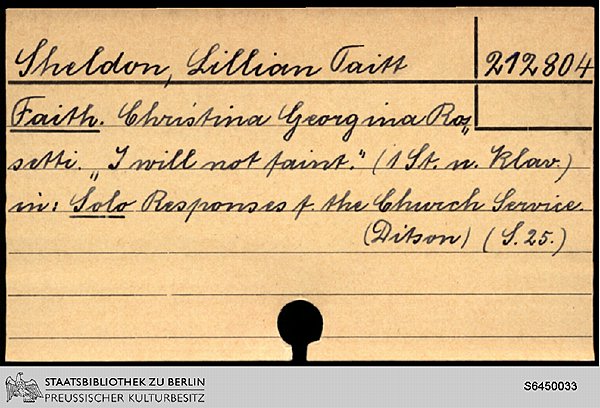 Sheldon, Lillian Taitt
212804
Faith. Christina Georgina Ros„
setti. „I will not faint." (1 St. u. Klav.)
in: Solo Responses f. the Church Service.
(Ditson) (S. 25.)
STAATSBIBLIOTHEK ZU BERLIN
PREUSSISCHER KULTURBESITZ
S6450033